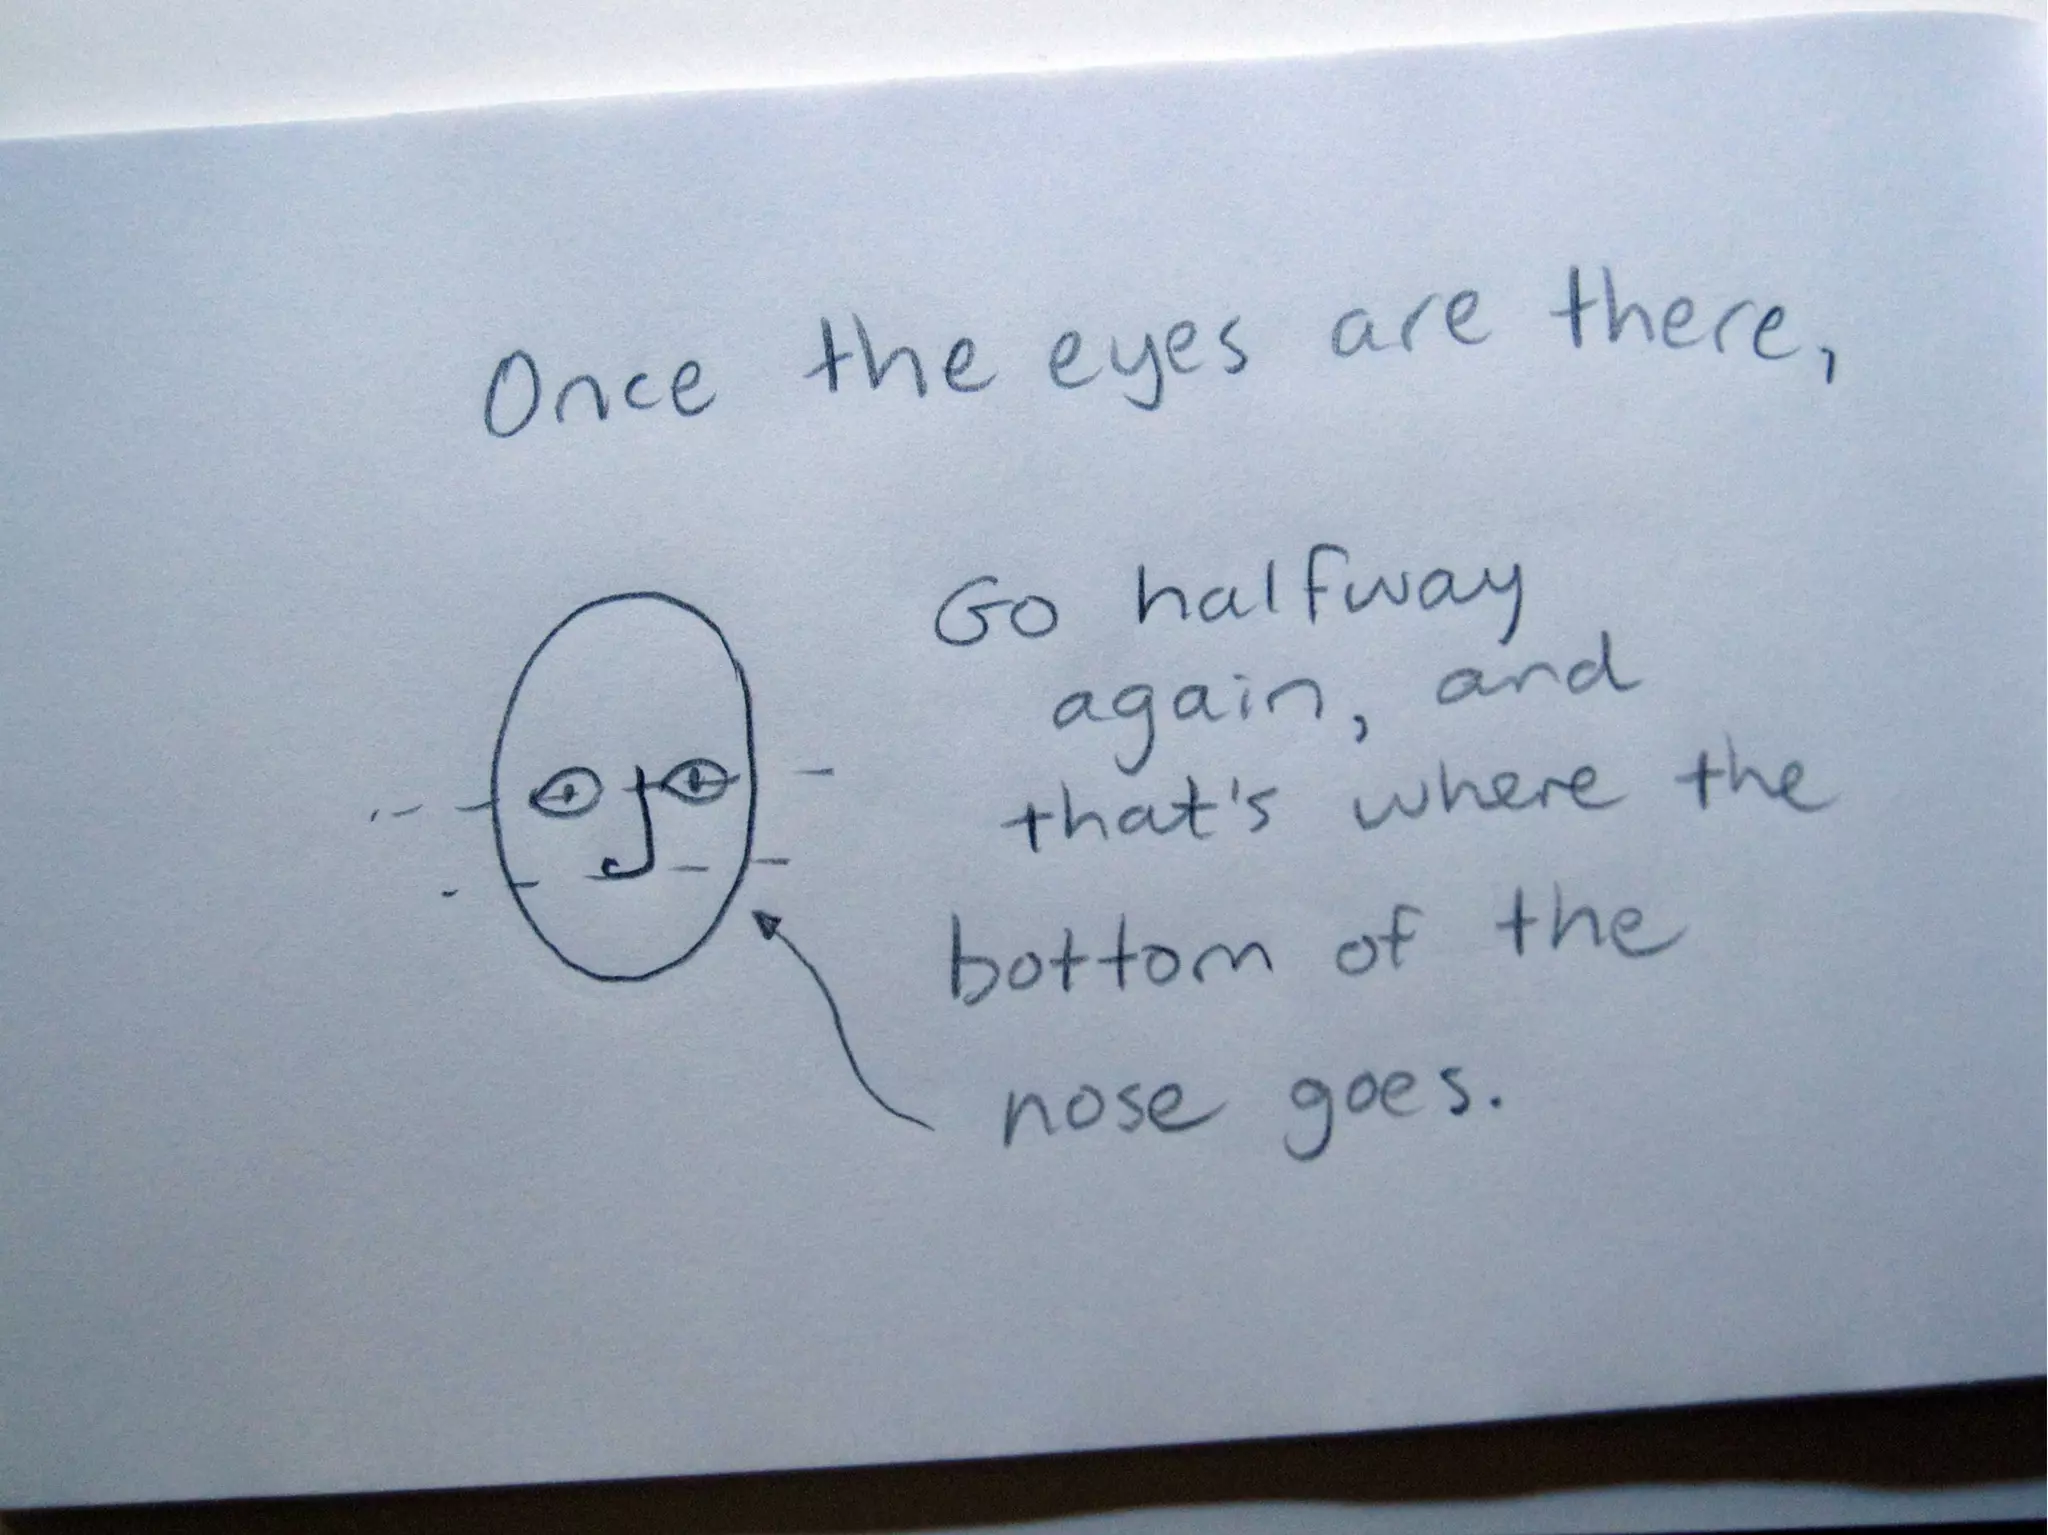 Once the eyes are there,
Go halfway
again, and
that's where the
bottom of the
nose goes.